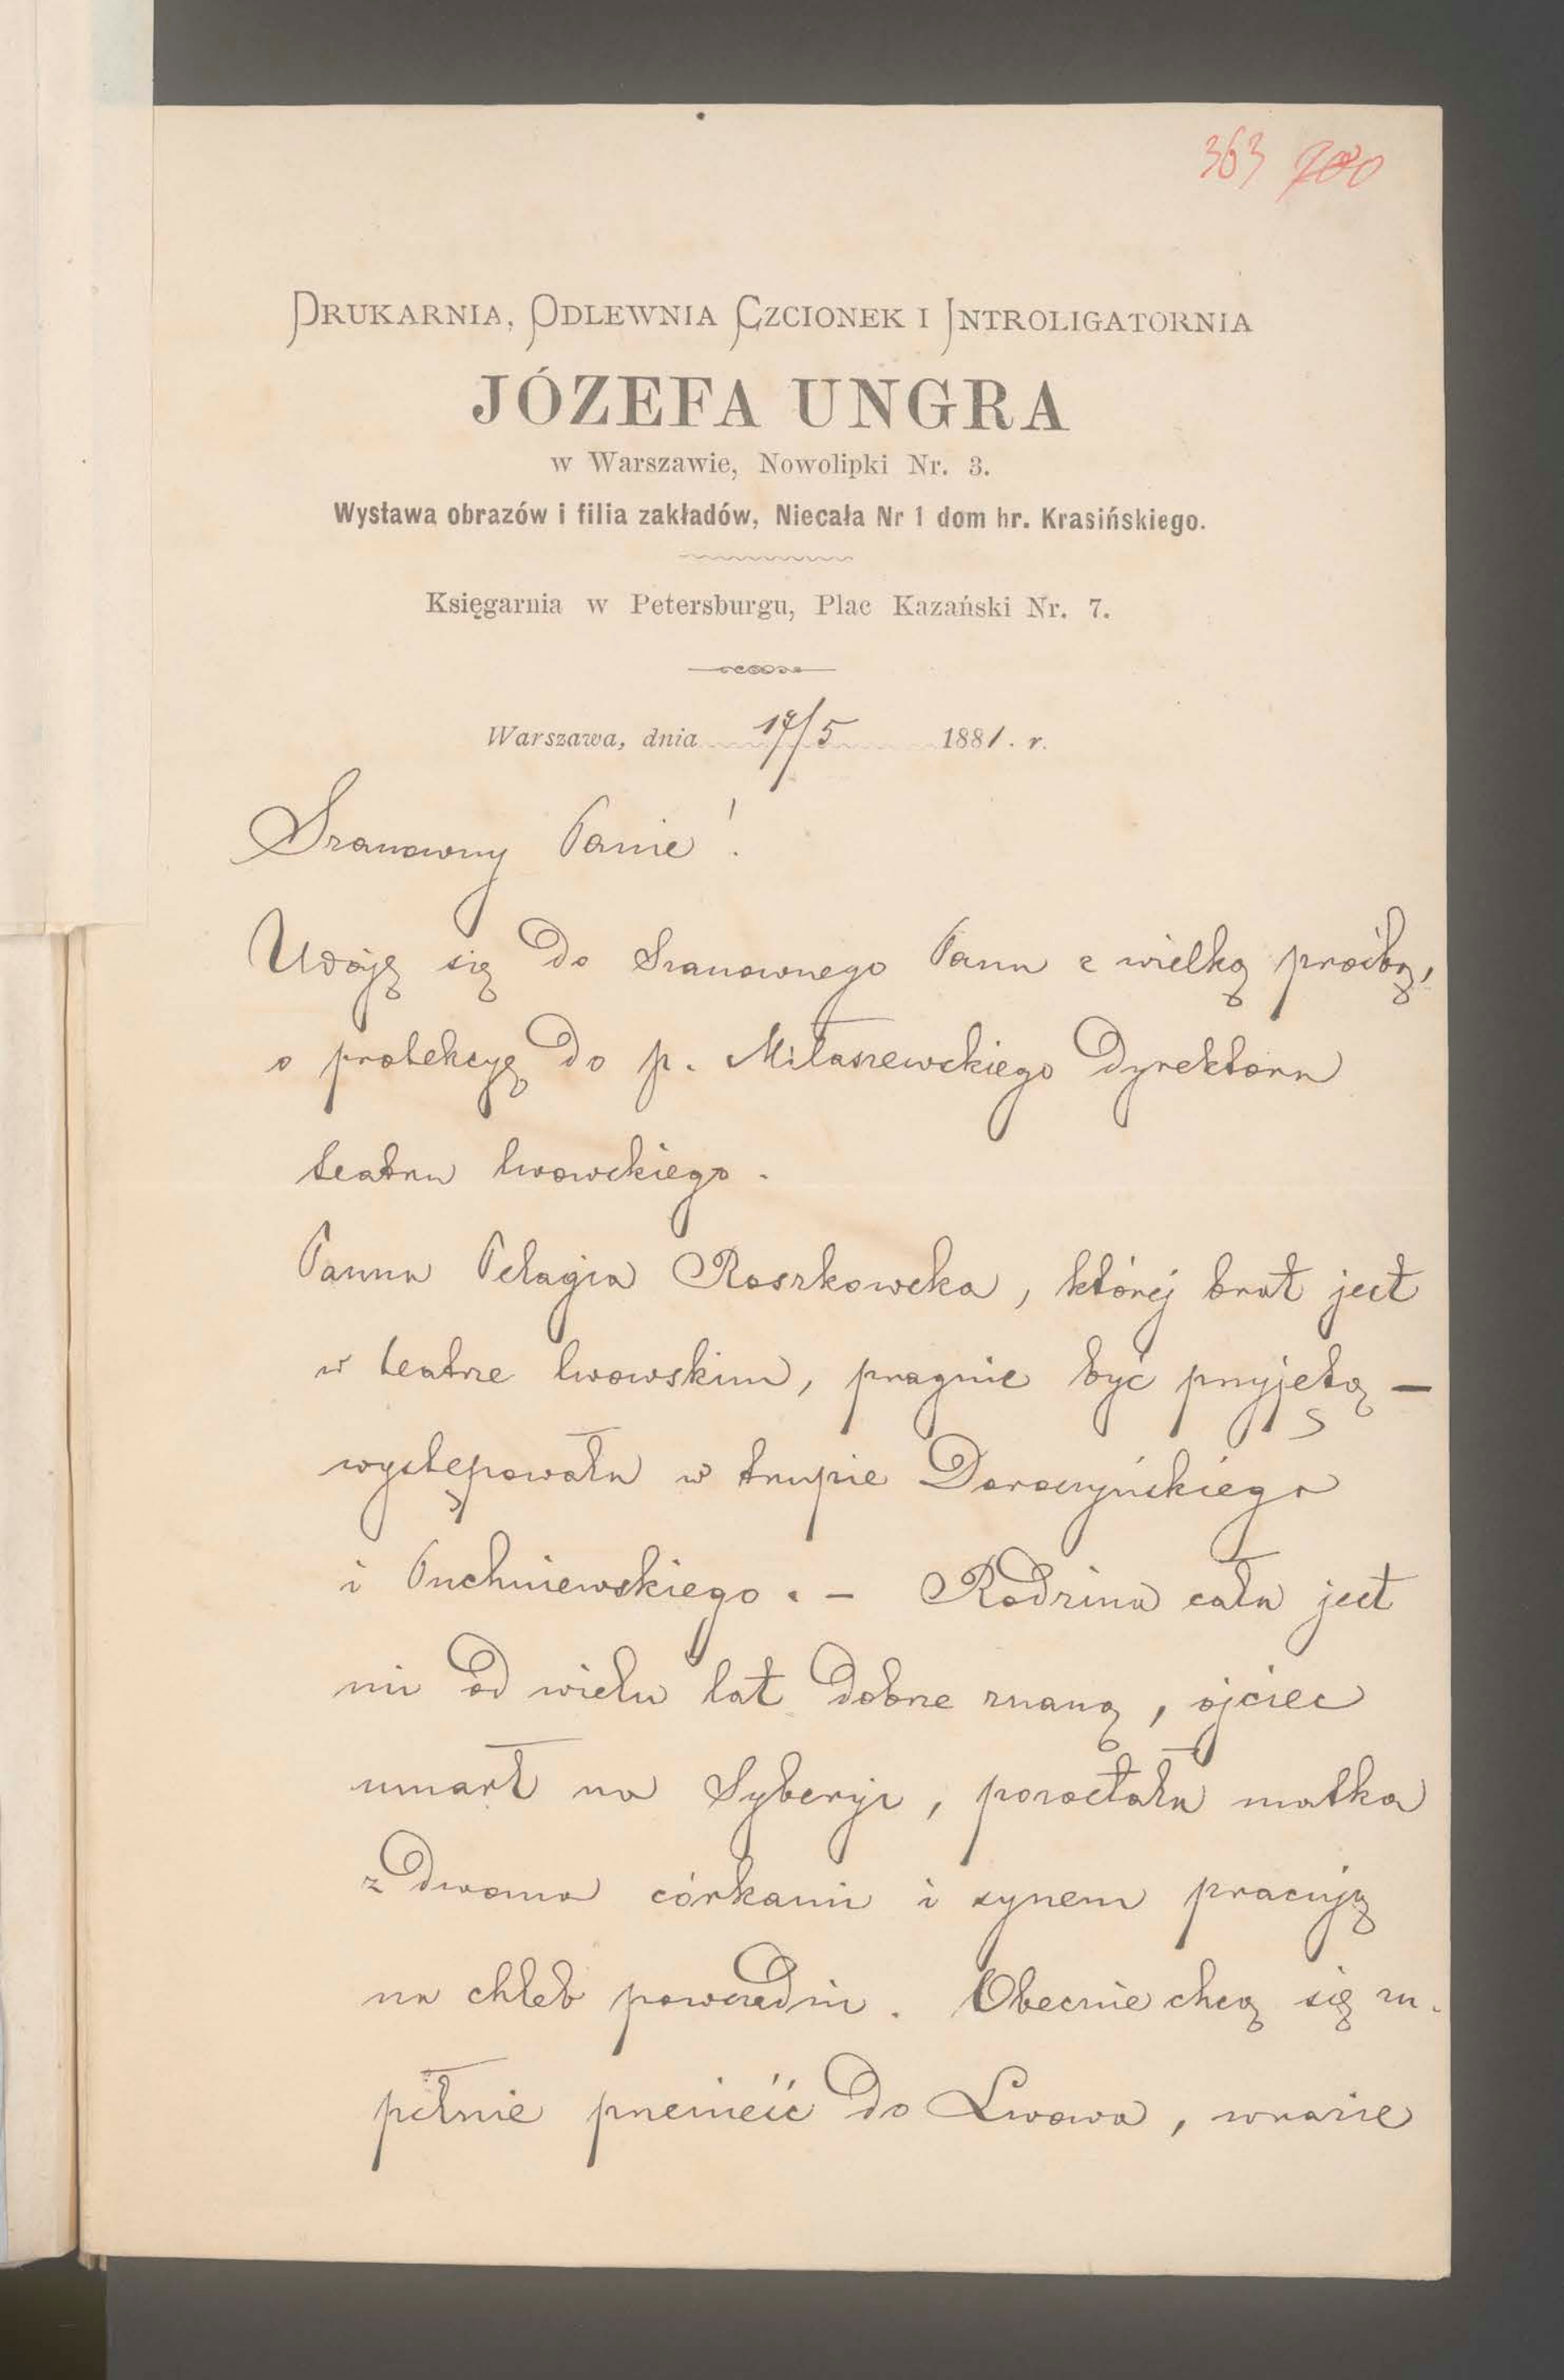 363 700
DRUKARNIA, ODLEWNIA CZCIONEK I INTROLIGATORNIA
JÓZEFA UNGRA
w Warszawie, Nowolipki Nr. 3.
Wystawa obrazów i filia zakładów, Niecała Nr 1 dom hr. Krasińskiego.
Księgarnia w Petersburgu, Plac Kazański Nr. 7.
Warszawa, dnia 17/5 1881. r.
Szanowny Panie!
Udaję się do Szanownego Pana z wielką prośbą,
o protekcyę do p. Miłaszewskiego Dyrektora
teatru lwowskiego.
Panna Pelagia Roszkowska, której brat jest
w teatrze lwowskim, pragnie być przyjętą —
występowała w trupie Doroszyńskiego
i Puchniewskiego. — Rodzina cała jest
mi od wielu lat dobrze znaną, ojciec
umarł na Syberyi, pozostała matka
z dwoma córkami i synem pracują
na chleb powszedni. Obecnie chcą się zu-
pełnie przenieść do Lwowa, wrazie